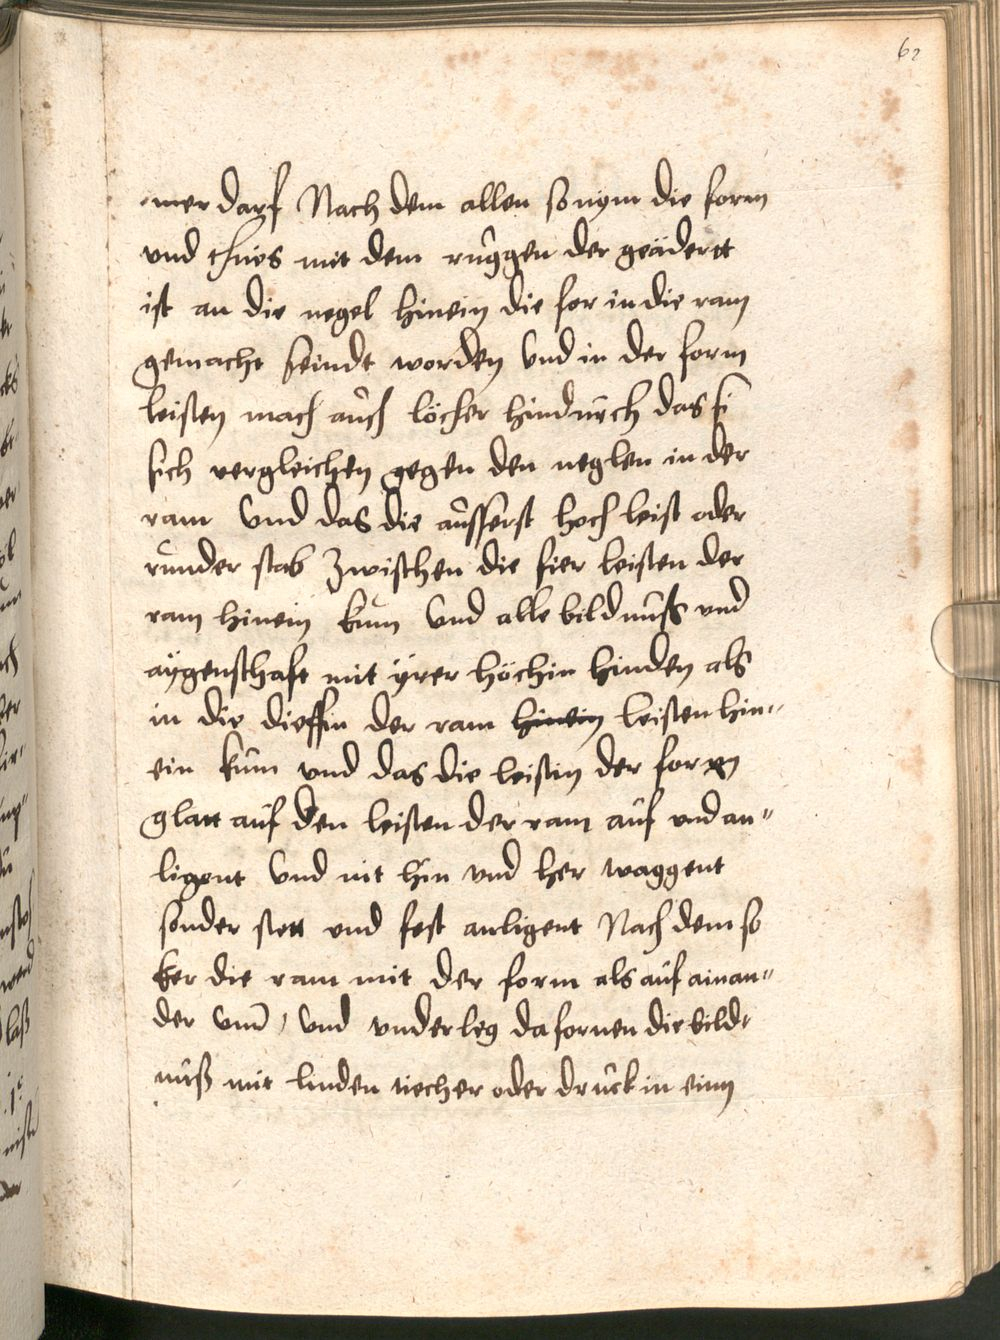 62
mer darf Nach dem allen so nym die form
vnd thus mit dem ruggen der geädertt
ist an die negel hinein die for in die ram
gemacht seindt worden Vnd in der form
leisten mach auch löcher hindurch das si
sich vergleichen gegen den neglen in der
ram Vnd das die ausserst hoch leist oder
runder stab Zwischen die fier leisten der
ram hinein kum Vnd alle bildnuß vnd
aygenschaft mit yrer höchin hinden als
in die dieffin der ram hinein leisten hin-
ein kum vnd das die leistin der form
glatt auf den leisten der ram auf vnd an-
ligent Vnd nit hin vnd her waggent
sonder stett vnd fest anligent Nach dem so
ker die ram mit der form als auf ainan-
der vm / Vnd vnderleg da fornen die bildt
nuß mit linden tiecher oder druck in einn